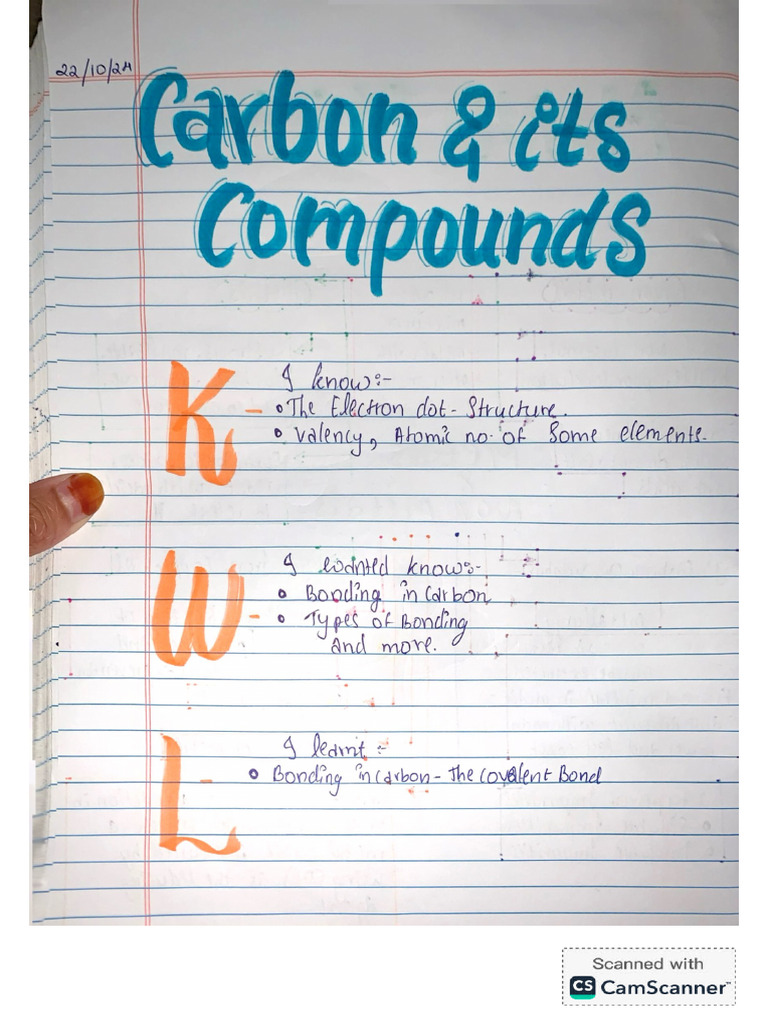 22/10/24
Carbon & its
Compounds
K - I know:-
• The Electron dot - Structure.
• Valency, Atomic no. of Some elements.
W - I wanted know:-
• Bonding in Carbon
• Types of Bonding
and more.
L - I learnt :-
• Bonding in Carbon - The Covalent Bond
Scanned with
CS CamScanner™